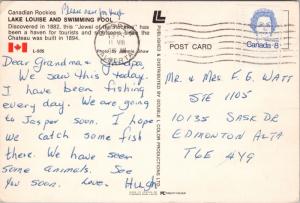 Canadian Rockies
LAKE LOUISE AND SWIMMING POOL
Discovered in 1882, this "Jewel of the Rockies" has
been a haven for tourists and sightseers since the
Chateau was built in 1894.
L-505
Photo by
POST CARD
Canada 8
Dear Grandma & Grandpa,
We saw this today.
I have been fishing
every day. We are going
to Jasper soon. I hope
we catch some fish
there. We have seen
some animals. See
you soon. Love. Hugh
PUBLISHED & DISTRIBUTED BY DOUBLE L COLOR PRODUCTIONS LTD.
Mr. & Mrs F. G. WATT
STE 1105
10135 SASK DR
EDMONTON ALTA
T6E 4Y9